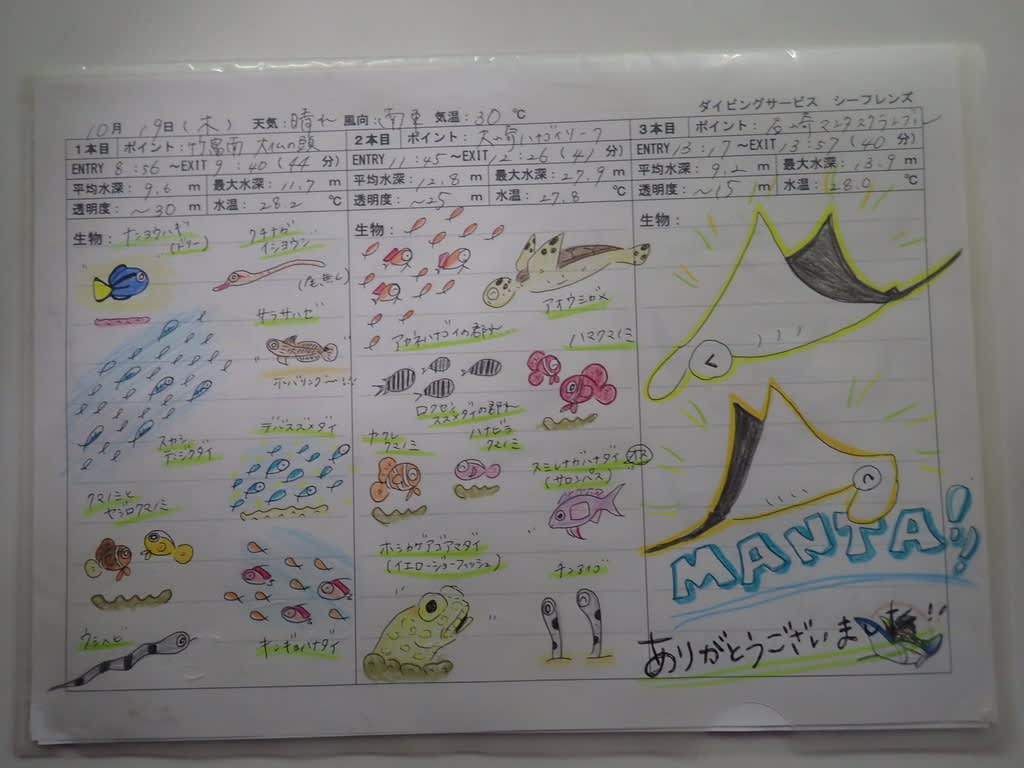 ダイビングサービス シーフレンズ
10月 19日(木) 天気:晴れ 風向:南東 気温:30℃
1本目 ポイント:竹富南
ENTRY 8:56 ～EXIT 9:40 (44分)
平均水深:9.6 m 最大水深:11.7 m
透明度:～30 m 水温:28.2 ℃
生物:
ナンヨウハギ
(ドリー)
クチナガ
イシヨウジ
(尾無し)
サラサハゼ
ホバリング～!!
スカシ
テンジクダイ
デバスズメダイ
クマノミと
ヤシロクマノミ
ウミヘビ
キンギョハナダイ
2本目 ポイント:大崎ハナゴイリーフ
ENTRY 11:45 ～EXIT 12:26 (41分)
平均水深:12.8 m 最大水深:27.9 m
透明度:～25 m 水温:27.8 ℃
生物:
アオウミガメ
アカネハナゴイの群れ
ハマクマノミ
ロクセン
スズメダイの群れ
カクレ
クマノミ
ハナビラ
クマノミ
スミレナガハナダイ(オス)
(サロンパス)
ホシカゲアゴアマダイ
(イエロージョーフィッシュ)
チンアナゴ
3本目 ポイント:石崎マンタスクランブル
ENTRY 13:17 ～EXIT 13:57 (40分)
平均水深:9.2 m 最大水深:13.9 m
透明度:～15 m 水温:28.0 ℃
生物:
MANTA!!
ありがとうございま